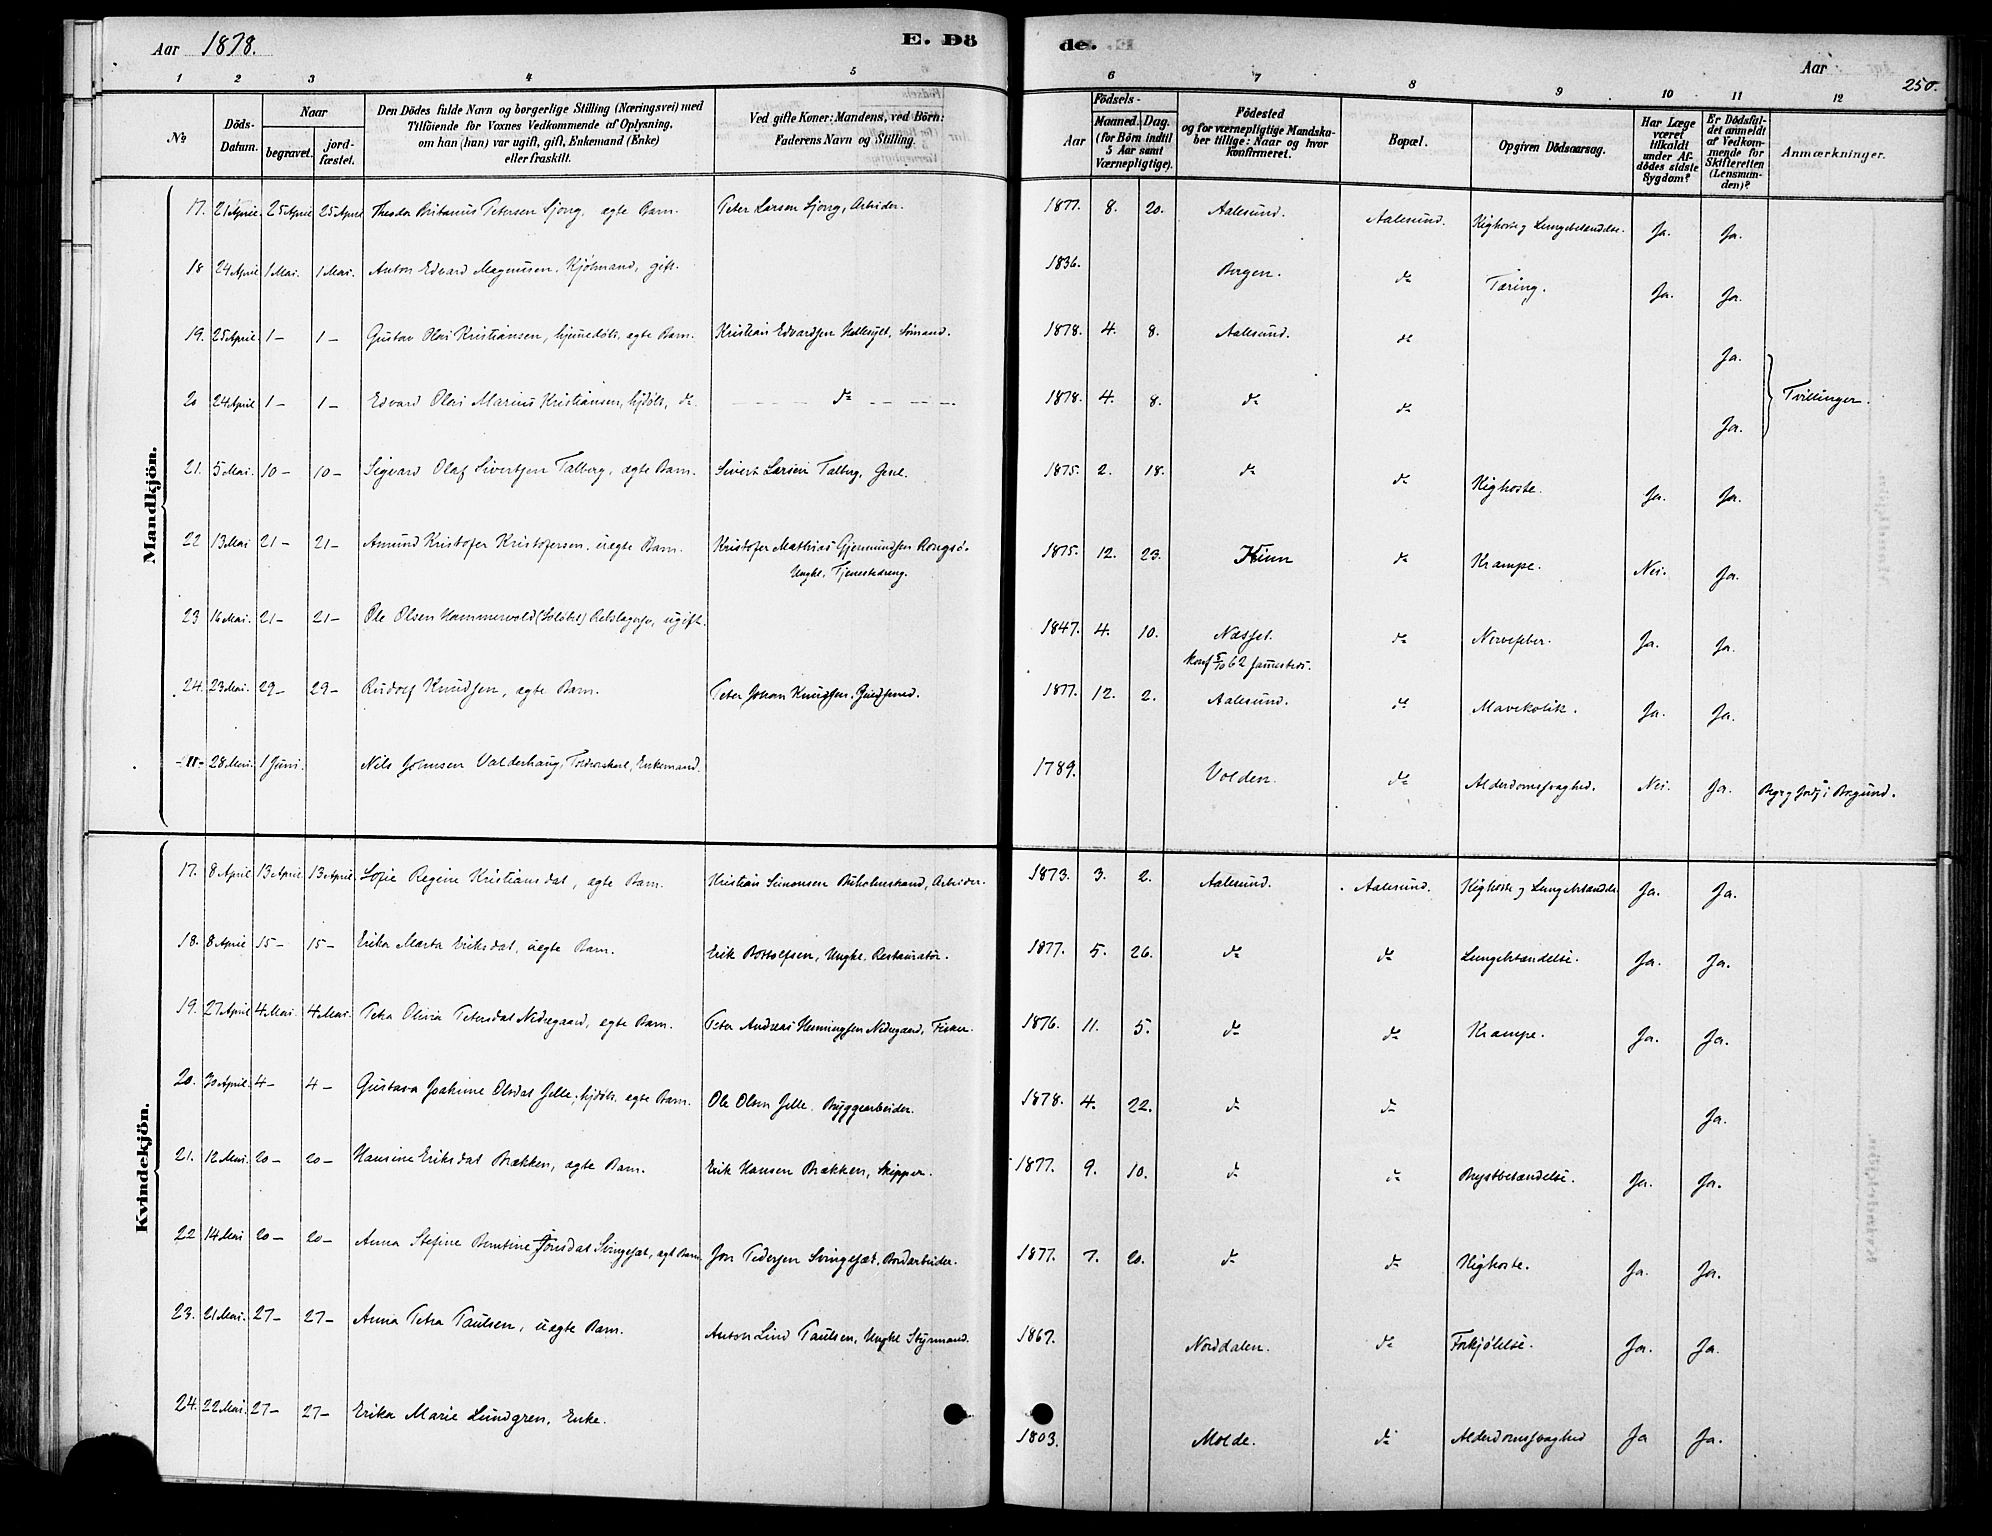 Aar 1878.
E. Dö
de.
Aar
250.
1 2 3 4 5 6 7 8 9 10 11 12
No
Döds-Datum.
Naar
begravet.
jord-fæstet.
Den Dödes fulde Navn og borgerlige Stilling (Næringsvei) med
Tilföiende for Voxnes Vedkommende af Oplysning,
om han (hun) var ugift, gift, Enkemand (Enke)
eller fraskilt.
Ved gifte Koner: Mandens, ved Börn:
Faderens Navn og Stilling.
Födsels-
Aar
Maaned. Dag.
(for Börn indtil
5 Aar samt
Værnepligtige).
Födested
og for værnepligtige Mandska-
ber tillige: Naar og hvor
konfirmeret.
Bopæl.
Opgiven Dödsaarsag.
Har Læge
været
tilkaldt
under Af-
dödes sidste
Sygdom?
Er Dödsfal-
det anmeldt
af Vedkom-
mende for
Skifteretten
(Lensman-
den)?
Anmærkninger.
Mandkjön.
17. 21 April. 25 April 25 April Theodor Peter Larsen Sjong, Arbeider. 1877. 8. 20. Aalesund. Aalesund. Kighoste og Lungebetændelse. Ja. Ja.
18 24 April 1 Mai. 1 Mai. Anton Edvard Magnussen, Kjøbmand, gift. 1836. Bergen. do Tæring. Ja. Ja.
19. 25 April. 1 - 1 - Gustav Olai Kristiansen, hjemedøbt, ægte Barn. Kristian Edvardsen Hellesylt, Sømand. 1878. 4. 8. Aalesund. do Ja.
20 24 April 1 - 1 - Edvard Olai Marius Kristiansen, hjdøbt, do. do 1878. 4. 8. do do Ja. Tvillinger.
21. 5 Mai. 10 - 10 - Sigvard Olaf Sivertsen Talberg, ægte Barn. Sivert Larsen Talberg, 1875. 2. 18. do do Kighoste. Ja. Ja.
22 13 Mai 21 - 21 - Amund Kristofer Kristofersen, uægte Barn. Kristofer Mathias Gjermundsen
Ungkl. Tjenestedreng. 1875. 12. 23. Kinn do Krampe. Nei. Ja.
23 16 Mai. 21 - 21 - Ole Olsen Hammervold ugift. 1847. 4. 10. Næsset.
Konf 5/10 62 do Nervefeber. Ja. Ja.
24. 23 Mai. 29 - 29 - Rudolf Knudsen, ægte Barn. Peter Johan Knudsen, Guldsmed. 1877. 12. 2. Aalesund. do Mavekolik. Ja. Ja.
- " - 28 Mai. 1 Juni. Nils Johnsen Valderhaug, Enkemand. 1789. Volden. do Alderdomssvaghed. Nei. Ja. Begr. og Jordf. i Borgund.
Kvindekjön.
17. 8 April 13 April 13 April. Sofie Regine Kristiansdat, ægte Barn. Kristian Simonsen Buholmstrand, Arbeider. 1873. 3. 2. Aalesund. Aalesund. Kighoste og Lungebetændelse Ja. Ja.
18. 8 April 15 - 15 - Erika Marta Eriksdat, uægte Barn. Erik Bottolfsen, Ungkl. Restauratør. 1877. 5. 26. do do Lungebetændelse. Ja. Ja.
19. 27 April 4 Mai. 4 Mai. Petra Olivia Petersdat Nedregaard, ægte Barn. Peter Andreas Henningsen Nedregaard, Fisker. 1876. 11. 5. do do Krampe. Ja. Ja.
20. 30 April. 4 - 4 - Gustava Joakime Olsdat Jelle, hjdøbt, ægte Barn. Ole Olsen Jelle, Bryggearbeider. 1878. 4. 22. do do Ja.
21. 12 Mai. 20 - 20 - Hansine Eriksdat Brækken, ægte Barn. Erik Hansen Brækken, Skipper. 1877. 9. 10. do do Brystbetændelse. Ja. Ja.
22 14 Mai 20 - 20 - Anna Stefine Berntine Jonsdat Svingesæt, ægt Barn Jon Pedersen Svingesæt, Bordarbeider. 1877. 7. 20. do do Kighoste. Ja. Ja.
23. 21 Mai. 27 - 27 - Anna Petra Paulsen, uægte Barn. Anton Lind Paulsen, Ungkl Styrmand. 1867. Norddalen. do Forkjølelse. Ja. Ja.
24. 22 Mai. 27 - 27 - Erika Marie Lundgren, Enke. 1803. Molde. do Alderdomssvaghed Ja Ja.